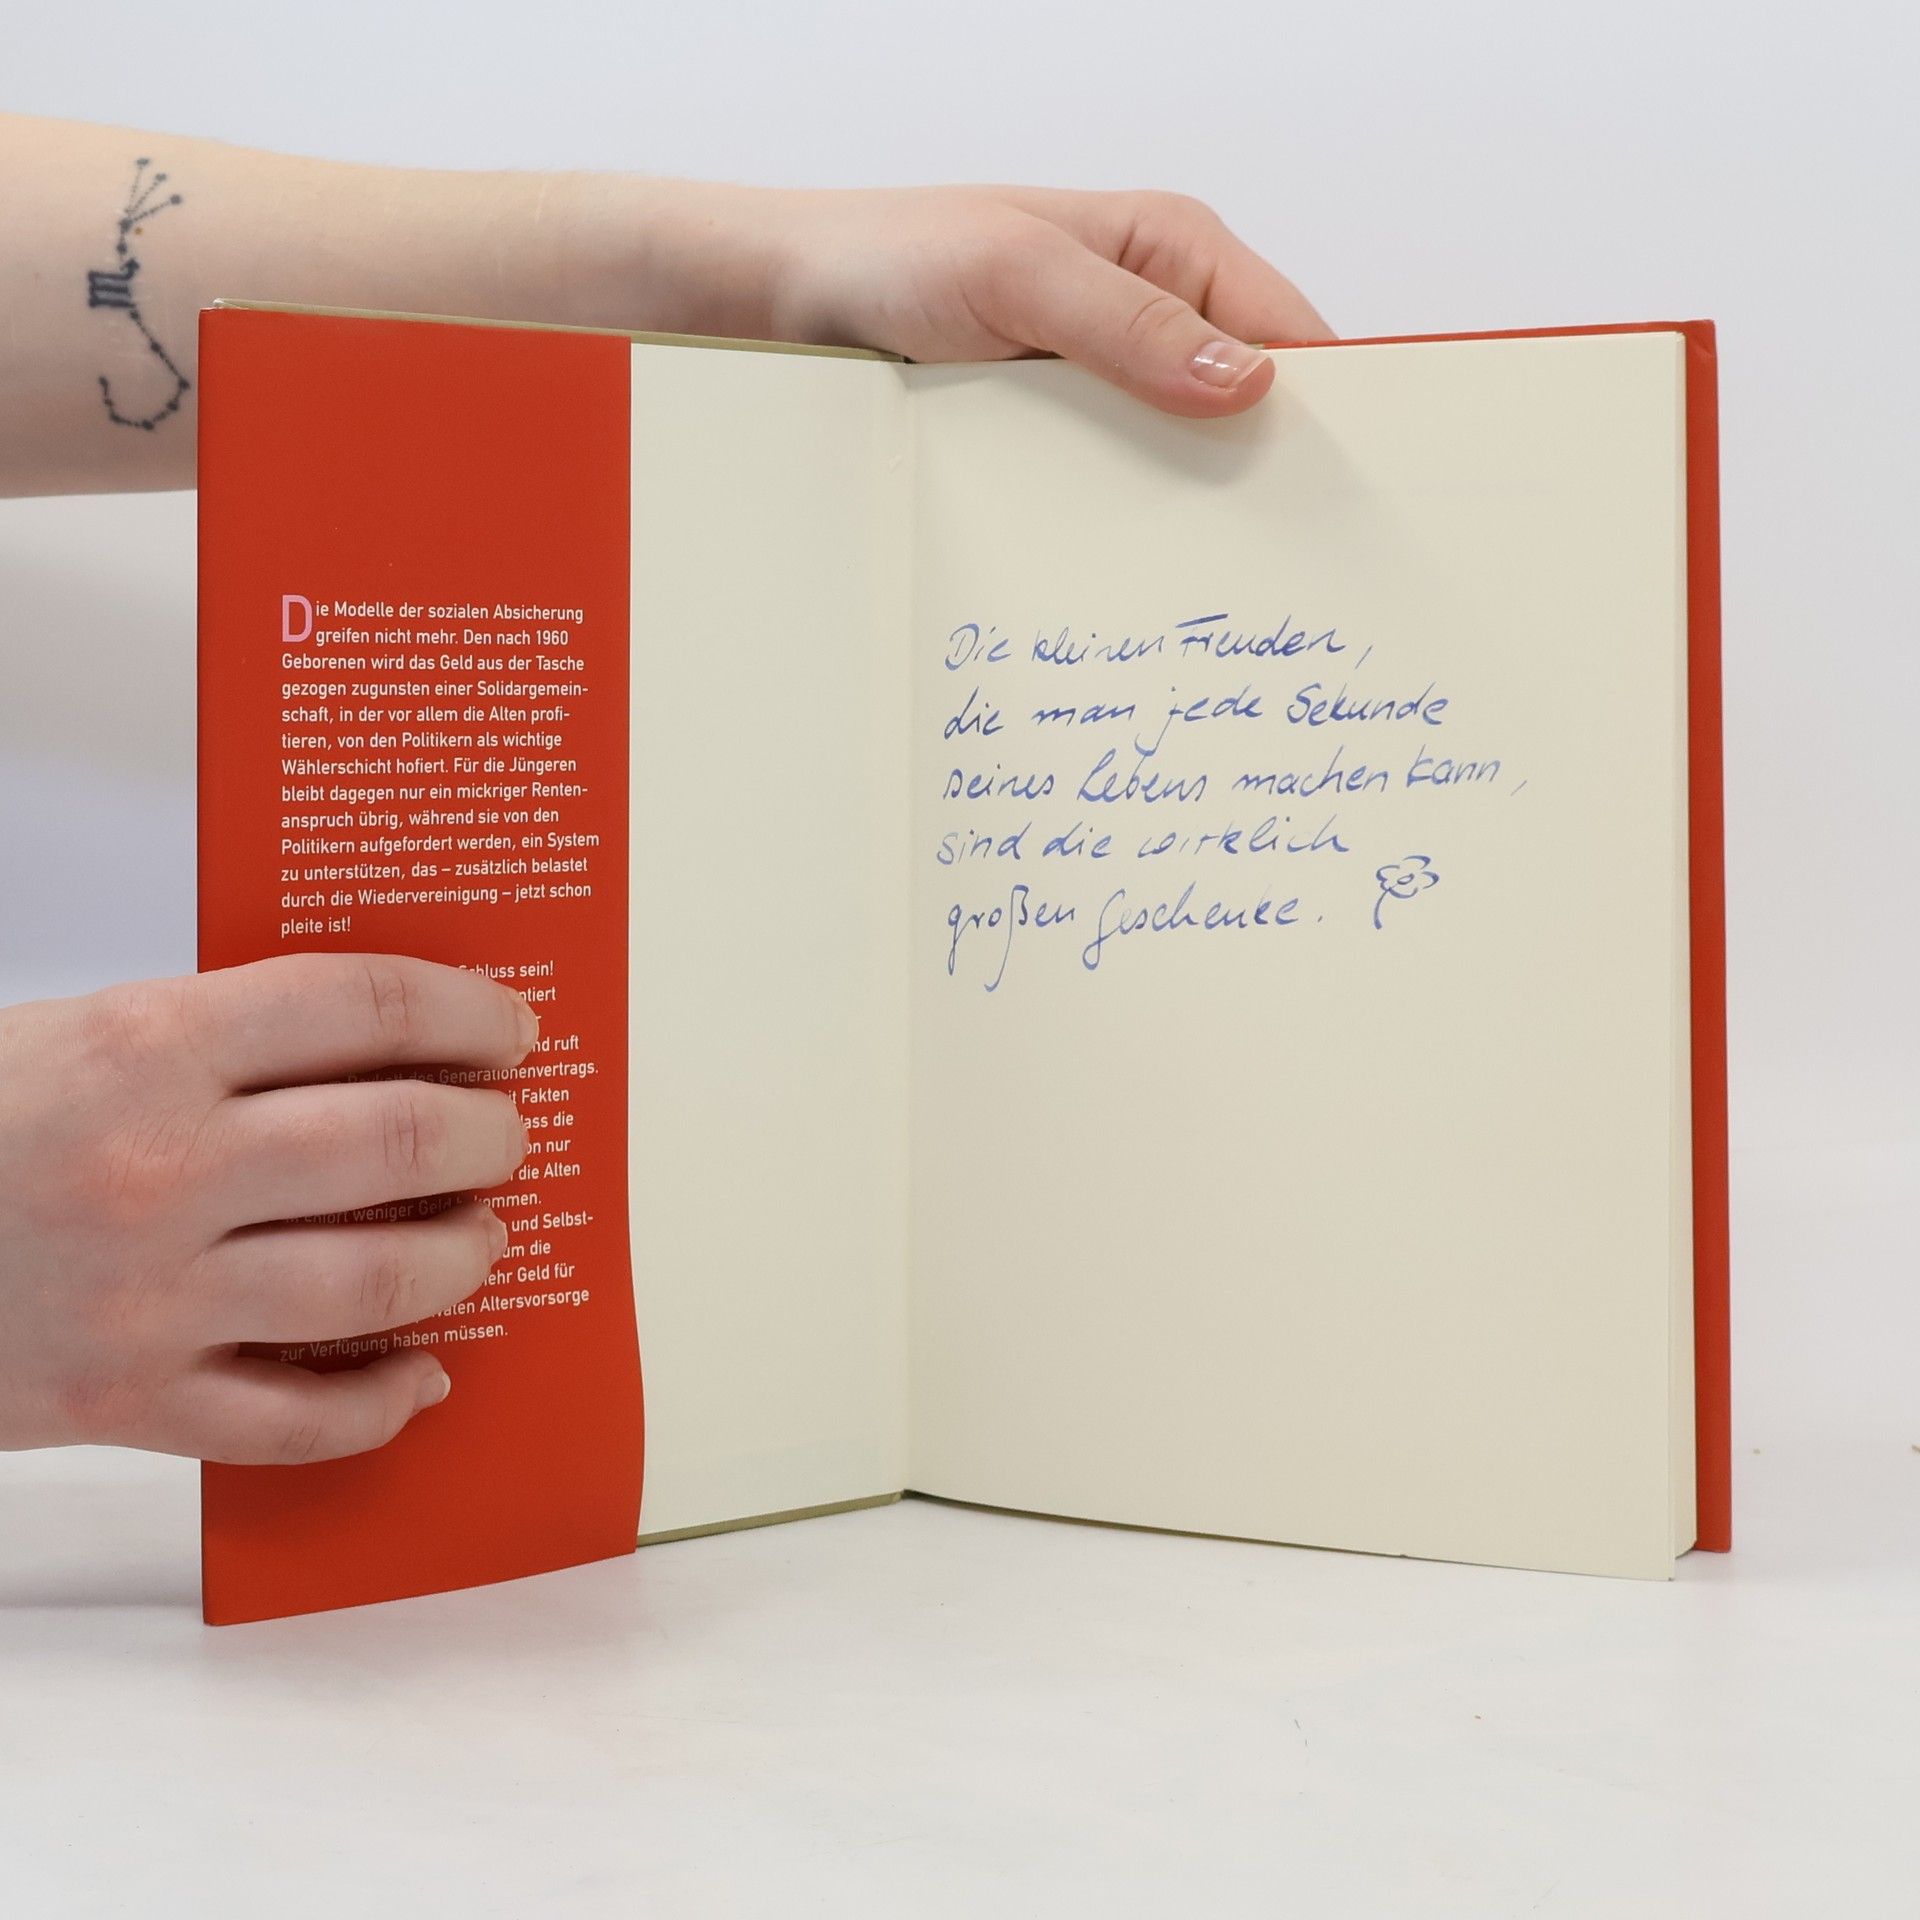 Die Modelle der sozialen Absicherung
greifen nicht mehr. Den nach 1960
Geborenen wird das Geld aus der Tasche
gezogen zugunsten einer Solidargemein-
schaft, in der vor allem die Alten profi-
tieren, von den Politikern als wichtige
Wählerschicht hofiert. Für die Jüngeren
bleibt dagegen nur ein mickriger Renten-
anspruch übrig, während sie von den
Politikern aufgefordert werden, ein System
zu unterstützen, das – zusätzlich belastet
durch die Wiedervereinigung – jetzt schon
pleite ist!
Schluss sein!
ruft
des Generationenvertrags.
Fakten
die
nur
die Alten
weniger Geld
und Selbst-
die
Geld für
Altersvorsorge
zur Verfügung haben müssen.
Die kleinen Freuden,
die man jede Sekunde
seines Lebens machen kann,
sind die wirklich
großen Geschenke.